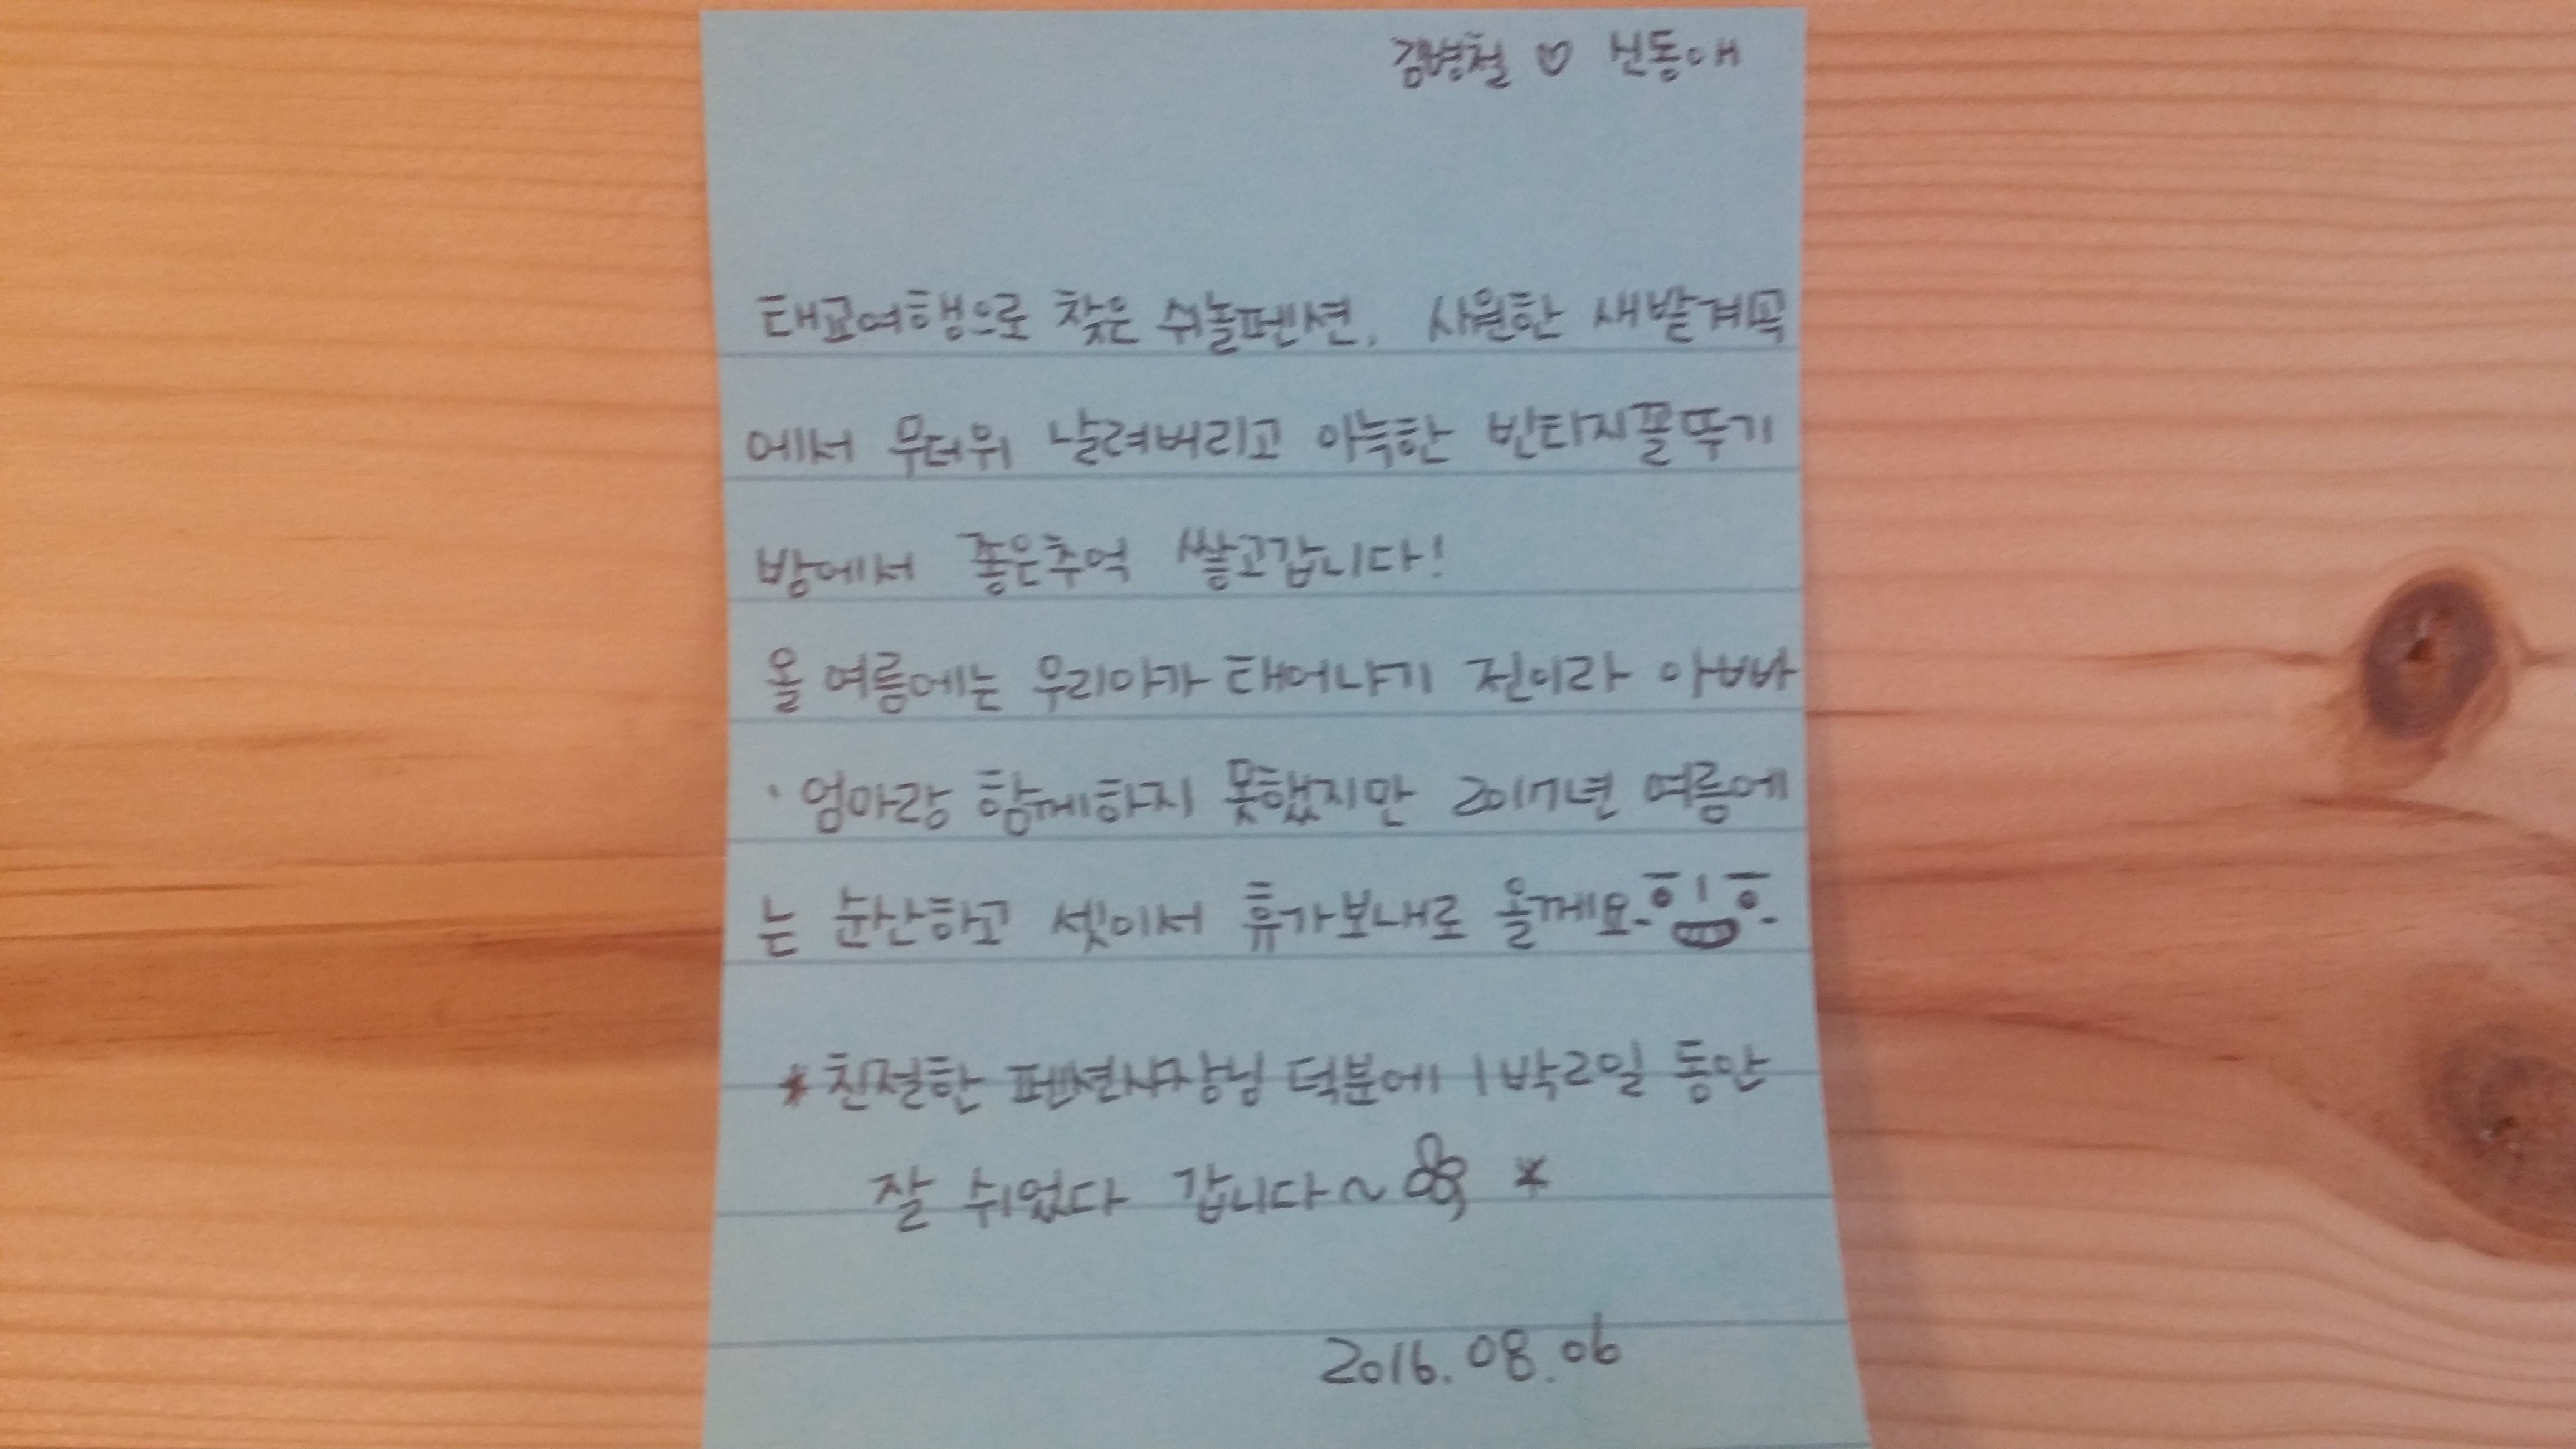 김병철 ♡ 신동애
태교여행으로 찾은 쉬놀펜션. 시원한 새밭계곡
에서 무더위 날려버리고 아늑한 빈티지꼴뚜기
방에서 좋은추억 쌓고갑니다!
올 여름에는 우리아가 태어나기 전이라 아빠
· 엄마랑 함께하지 못했지만 2017년 여름에
는 순산하고 셋이서 휴가보내로 올께요
*친절한 펜션사장님 덕분에 1박2일 동안
잘 쉬었다 갑니다~ *
2016.08.06